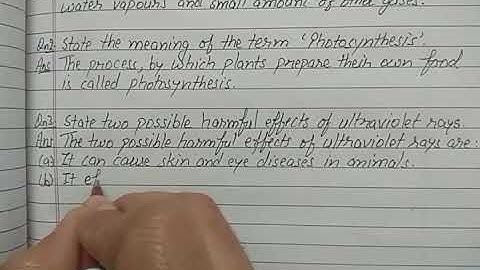 water vapours and small amount of other gases.
Qn2 State the meaning of the term 'Photosynthesis'.
Ans The process, by which plants prepare their own food
is called photosynthesis.
Qn3 State two possible harmful effects of ultraviolet rays.
Ans The two possible harmful effects of ultraviolet rays are:
(a) It can cause skin and eye diseases in animals.
(b) It ef